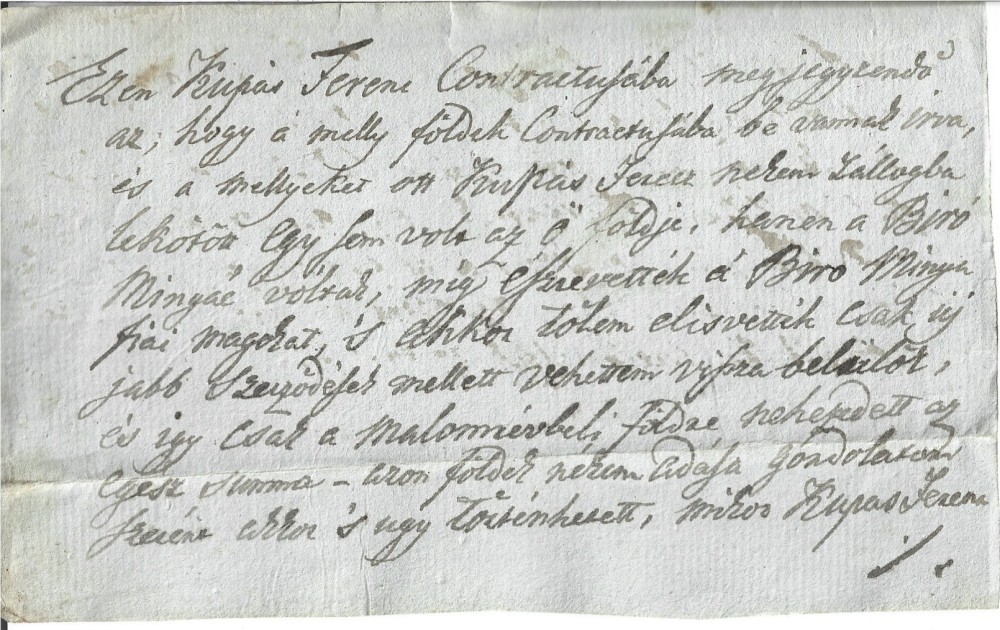 Ezen Kupás Ferenc Contractusába megjegyzendő
az, hogy á melly földek Contractusába bé vannak irva,
és a mellyeket ott Kupás Ferecz nekem Zállogba
lekötött egy sem volt az ő földje, hanem a Biró
Mingáé vóltak, mig észrevették á Biro Minga
fiai magokat, 's akkor tőlem elisvették csak uj
jabb szerződések mellett vehettem vissza belőlök,
és igy csak a malommérbeli földre nehezedett az
egész summa – azon földek nékem adása gondolatom
szerént akkor 's ugy történhetett, mikor Kupas Ferenc
./.